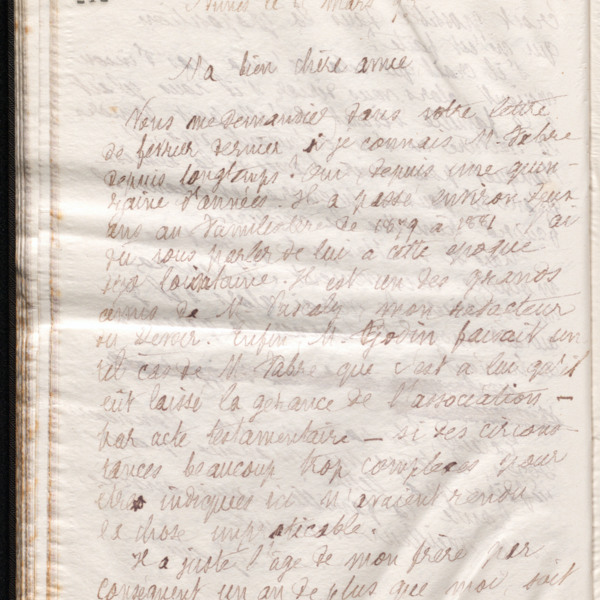 mars
Ma bien chère amie
Vous me demandiez dans votre lettre
de fevrier dernier si je connais M. Fabre
depuis longtemps? Oui depuis une quin-
zaine d'années. Il a passé environ deux
ans au Familistère de 1879 à 1881. J'ai
du vous parler de lui a cette epoque
si lointaine. Il est un des grands
amis de M. mon redacteur
au Devoir. Enfin M. Godin faisait un
tel cas de M. Fabre que c'est à lui qu'il
eut laissé la gérance de l'association –
par acte testamentaire – si des circons-
tances beaucoup trop complexes pour
être indiquées ici n'avaient rendu
la chose impraticable.
Il a juste l'âge de mon frère par
conséquent un an de plus que moi, soit